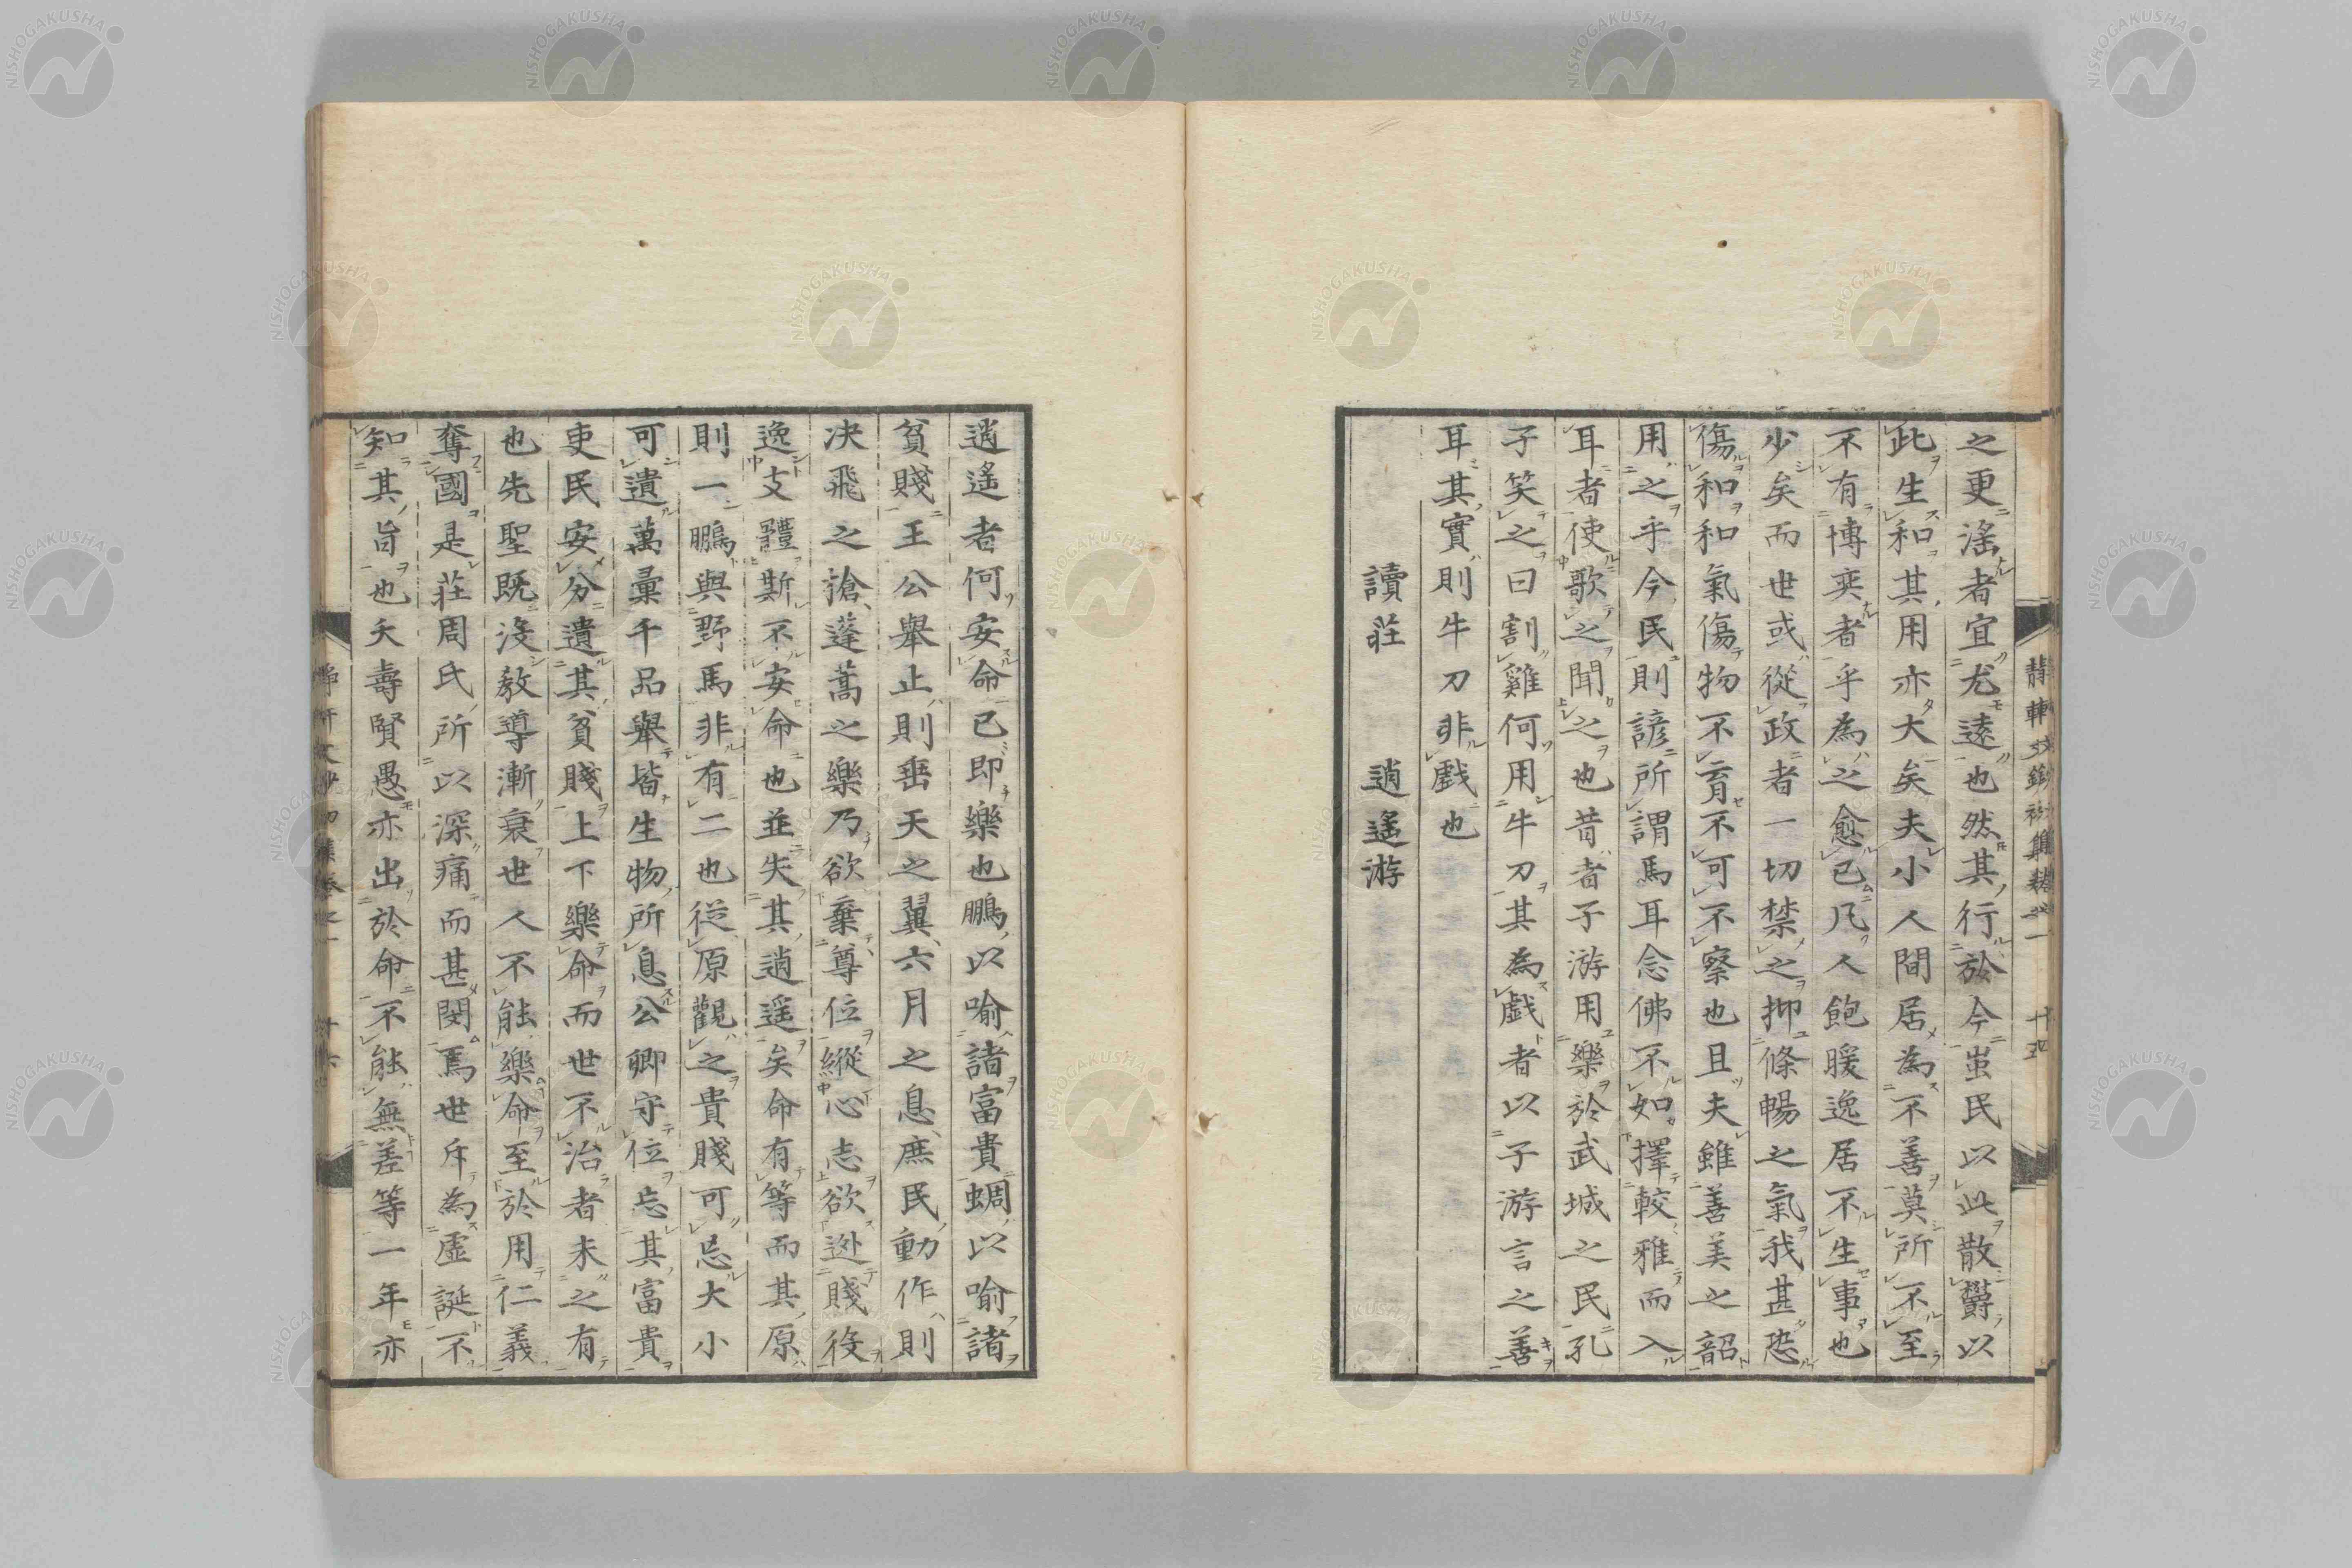 之更滛者宜尤遠也然其行於今蚩民以此散欝以
此生和其用亦大矣夫小人間居為不善莫所不至
不有博奕者乎為之愈已凡人飽暖逸居不生事也
少矣而世或從政者一切禁之抑條暢之氣我甚恐
傷和和氣傷物不育不可不察也且夫雖善美之韶
用之乎今民則諺所謂馬耳念佛不如擇較雅而入
耳者使歌之聞之也昔者子游用樂於武城之民孔
子笑之曰割雞何用牛刀其為戲者以子游言之善
耳其實則牛刀非戲也
讀莊　逍遙游
逍遙者何安命已即樂也鵬以喻諸富貴蜩以喻諸
貧賤王公舉止則垂天之翼六月之息庶民動作則
决飛之搶蓬蒿之樂乃欲棄尊位縱心志欲迯賤役
逸支體斯不安命也並失其逍遥矣命有等而其原
則一鵬與野馬非有二也從原觀之貴賤可忘大小
可遺萬彙千品舉皆生物所息公卿守位忘其富貴
吏民安分遺其貧賤上下樂命而世不治者未之有
也先聖既沒教導漸衰世人不能樂命至於用仁義
奪國是莊周氏所以深痛而甚閔焉世斥為虛誕不
知其旨也夭壽賢愚亦出於命不能無差等一年亦